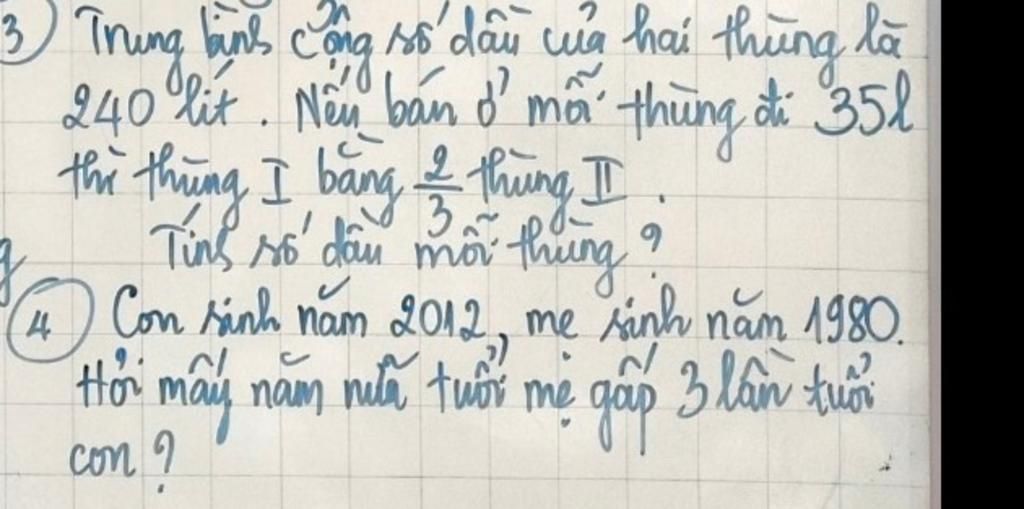 3) Trung bình cộng số dầu của hai thùng là
240 lít. Nếu bán ở mỗi thùng đi 35l
thì thùng I bằng 2/3 thùng II.
Tính số dầu mỗi thùng?
4) Con sinh năm 2012, mẹ sinh năm 1980.
Hỏi mấy năm nữa tuổi mẹ gấp 3 lần tuổi
con?